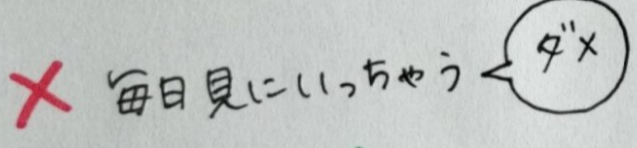 × 毎日見にいっちゃう
ダメ